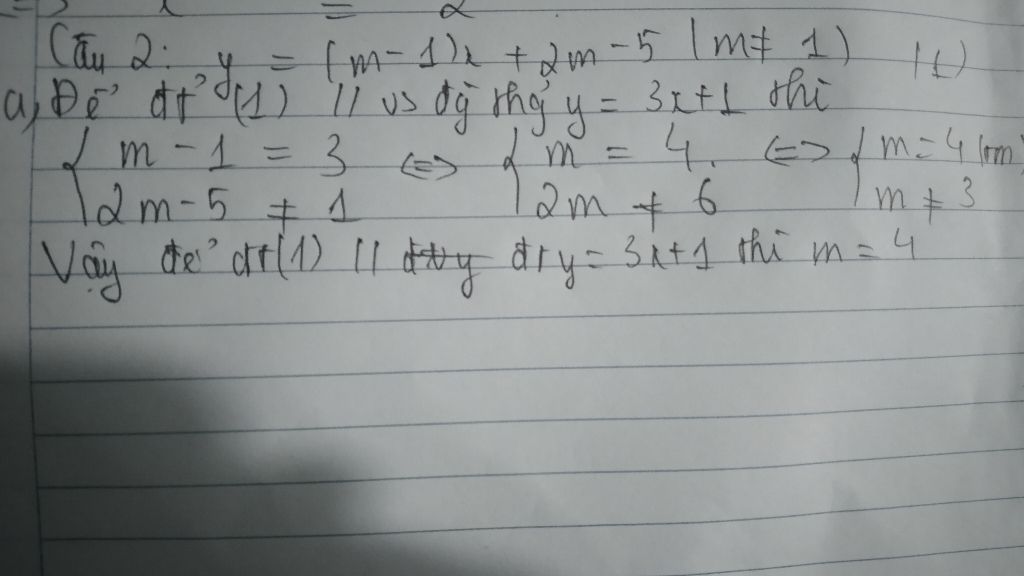 => x = 2
Câu 2: y = (m-1)x + 2m-5 (m≠ 1) (1)
a, Để đt (1) // vs đg thg y = 3x+1 thì
{ m - 1 = 3 <=> { m = 4. <=> { m = 4 (tm)
2m-5 ≠ 1 2m ≠ 6 m ≠ 3
Vậy để đt(1) // đt y = 3x+1 thì m = 4